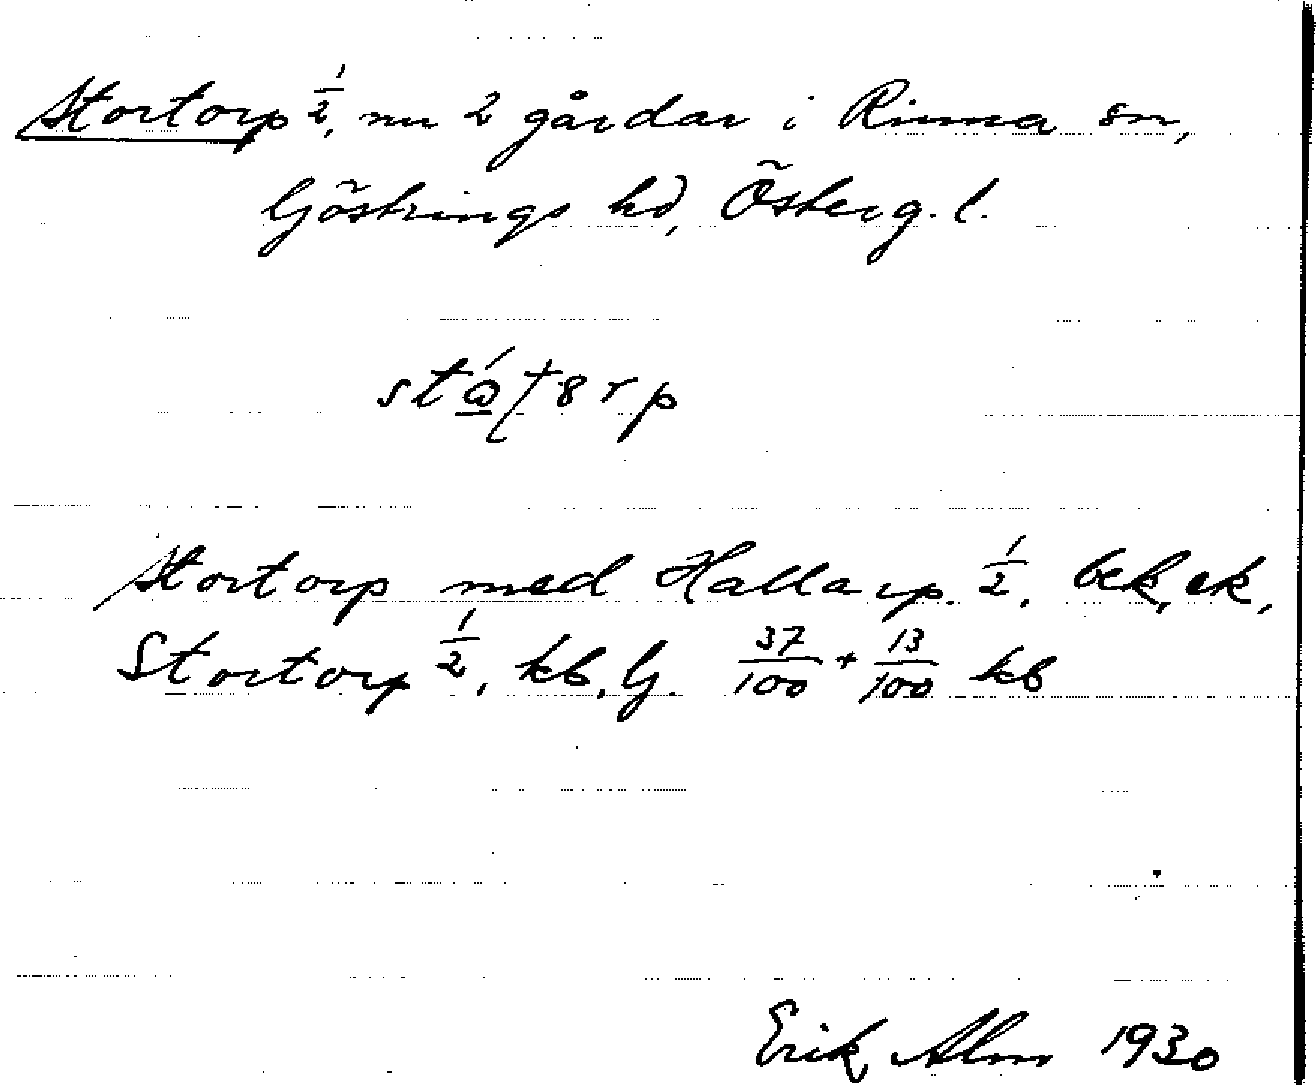 Stortorp 1/2, nu 2 gårdar i Rinna sn,
Göstrings hd, Österg. l.
Stortorp med Hallarp. 1/2, bek, ek,
Stortorp 1/2, kb, Lj. 37/100 + 13/100 kb
Erik Alm 1930